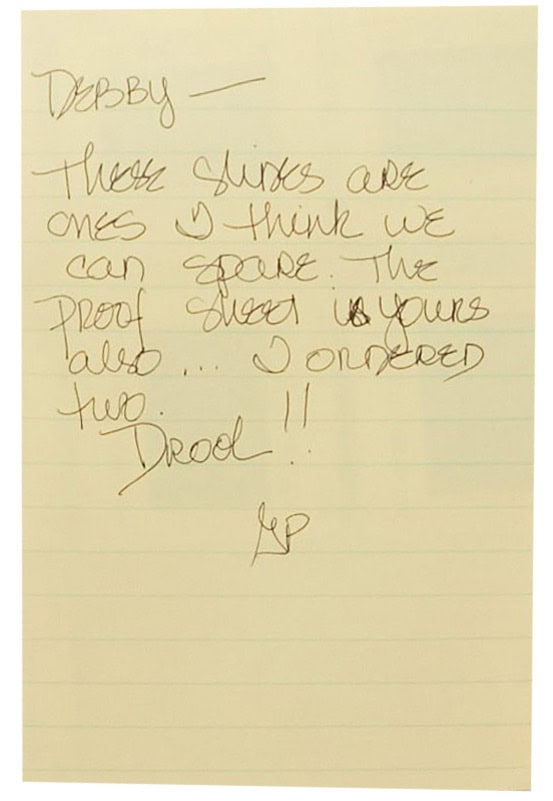 DEBBY —
These slides are
ones I think we
can spare. The
proof sheet is yours
also... I ORDERED
two. !!
Drool
GP